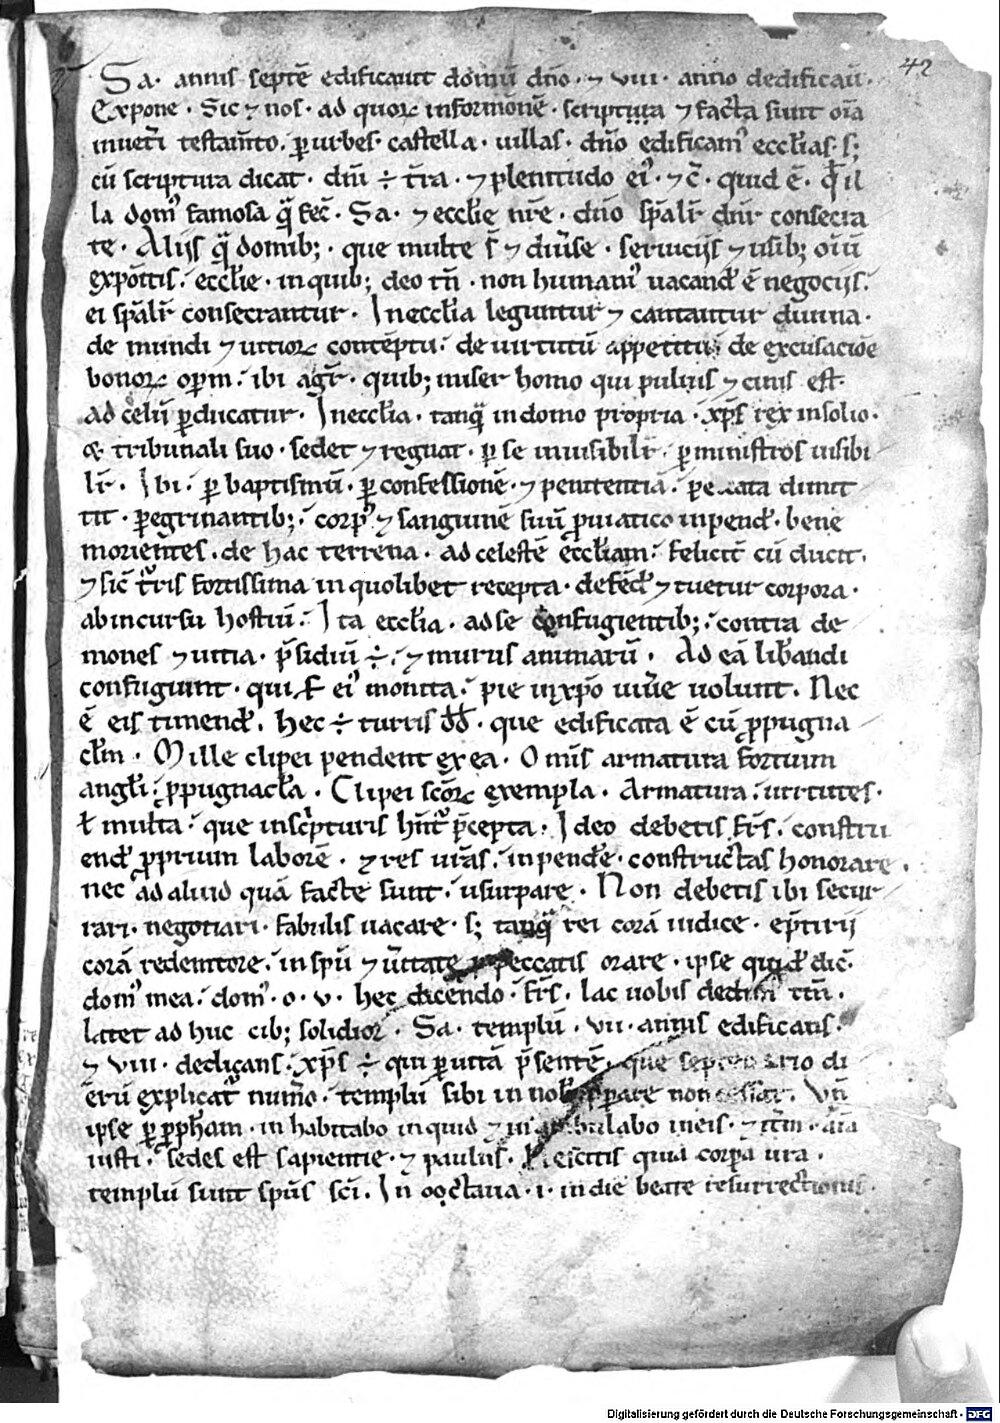 42
Sa· annis septē edificauit domū dn̄o· ⁊ viii· anno dedicauit·
Expone· Sic ⁊ nos· ad quoꝝ informōnē· scriptura ⁊ facta sunt oīa
ueteri testam̄to· ꝑ urbes· castella· uillas· dn̄o edificamꝰ eccl̄ias· sꝫ
cū scriptura dicat· dn̄i ÷ t̄ra· ⁊ plenitudo eiꝰ· ⁊ c̄· quid ē· qđ il
la domꝰ famosa quā fec̄· Sa· ⁊ eccl̄ie nr̄e· dn̄o sp̄alit̄ dn̄r consecra
te· Alijs quā domibꝫ· que multe s̄t ⁊ diu̓se· seruicijs ⁊ usibꝫ oīū
expōitis· eccl̄ie· in quibꝫ deo tn̄· non humanis uacand̄ ē negocijs·
ei sp̄alit̄ consecrantur· In eccl̄ia leguntur ⁊ cantantur diuina·
de mundi ⁊ uitioꝝ contēptu· de uirtutū appetitu· de excusaciōe
bonoꝝ opeꝝ· ibi agit̄· quibꝫ miser homo qui puluis ⁊ cinis est·
ad celū ꝑducatur· In eccl̄ia· tanquā in domo propria· xp̄s rex in solio·
& tribunali suo· sedet ⁊ regnat· ꝑ se inuisibilit̄· ꝑ ministros uisibi
lit̄· Ibi· ꝑ baptismū· ꝑ confessionē· ⁊ penitentiā· peccata dimit
tit· ꝑegrinantibꝫ· corpꝰ ⁊ sanguinē suū ꝓ uiatico inpend̄· bene
morientes· de hac terrena· ad celestē eccl̄iam· felicit̄ cū ducit·
⁊ sic̄ turris fortissima in quolibet recepta· defēd̄ ⁊ tuetur corpora·
ab incursu hostiū· Ita eccl̄ia· ad se confugientibꝫ· contra de
mones ⁊ uitia· p̄sidiū ÷· ⁊ murus animarū· Ad eā lib̄andi
confugiunt· qui eiꝰ monita· pie in xp̄o uiu̓e uolunt· Nec
ē eis timend̄· Hec ÷ turris dd̄· que edificata ē cū ꝓpugna
cl̄m· Mille clipei pendent ex ea· Omīs armatura fortium
angl̄i· ꝓpugnacl̄a· Clipei sc̄oꝝ exempla· Armatura· uirtutes·
ł multa· que in scripturis hn̄t p̄cepta· Ideo debetis fr̄s· constru
end̄ ꝓprium laborē· ⁊ res ur̄as· inpend̓e· constructas honorare·
nec ad aliud quā facte sunt· usurpare· Non debetis ibi
rari· negotiari· fabulis uacare· sꝫ tanquā rei corā iudice·
corā redemtore· in sp̄u ⁊ u̓itate peccatis orare· ipse quid̄ dic̄·
domꝰ mea· domꝰ· o· v· hec dicendo· fr̄s· lac uobis dedim̄ tm̄·
latet ad huc cibꝫ solidior· Sa· templū· vii· annis edificans·
⁊ viii· dedicans· xp̄s ÷ qui ꝑ uitā p̄sentē· que septenario di
erū explicat̄ num̓o· templū sibi in nob̄ non cessat· Vn̄
ipse ꝑ ꝓph̄am· in habitabo inquid ⁊ in ambulabo in eis· ⁊ it̄m· aīa
iusti· sedes est sapientie· ⁊ paulus· Nescitis quia corꝑa ura·
templū sunt sp̄us sc̄i· In octaua· i· in die beate resurrectionis·
Digitalisierung gefördert durch die Deutsche Forschungsgemeinschaft - DFG